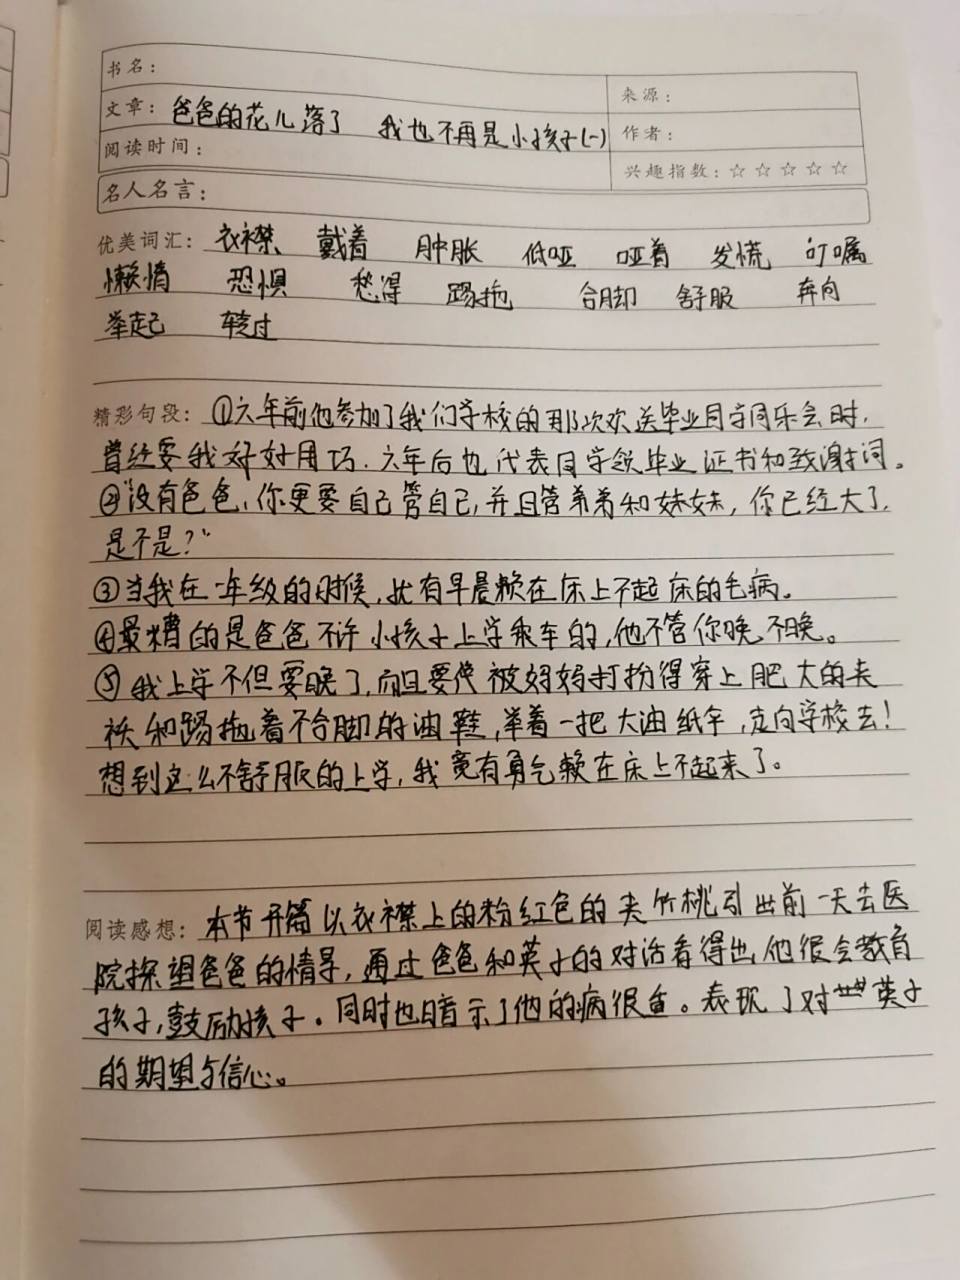 书名：
文章：爸爸的花儿落了 我也不再是小孩子(一)
来源：
阅读时间：
作者：
兴趣指数：☆☆☆☆☆
名人名言：
优美词汇：衣襟 戴着 肿胀 低哑 哑着 发慌 叮嘱
懒惰 恐惧 愁得 踢拖 合脚 舒服 奔向
举起 转过
精彩句段：①六年前他参加了我们学校的那次欢送毕业同学同乐会时,
曾经要我好好用巧.六年后也代表同学领毕业证书和致谢词。
②“没有爸爸,你更要自己管自己,并且管弟弟和妹妹,你已经大了,
是不是?”
③当我在一年级的时候,就有早晨赖在床上不起床的毛病。
④最糟的是爸爸不许小孩子上学乘车的,他不管你晚不晚。
⑤我上学不但要晚了,而且要像被妈妈打扮得穿上肥大的夹
袄和踢拖着不合脚的油鞋,举着一把大油纸伞,走向学校去!
想到这么不舒服的上学,我竟有勇气赖在床上不起来了。
阅读感想：本节开篇以衣襟上的粉红色的夹竹桃引出前一天去医
院探望爸爸的情景,通过爸爸和英子的对话看得出他很会教育
孩子,鼓励孩子。同时也暗示了他的病很重。表现了对英子
的期望与信心。